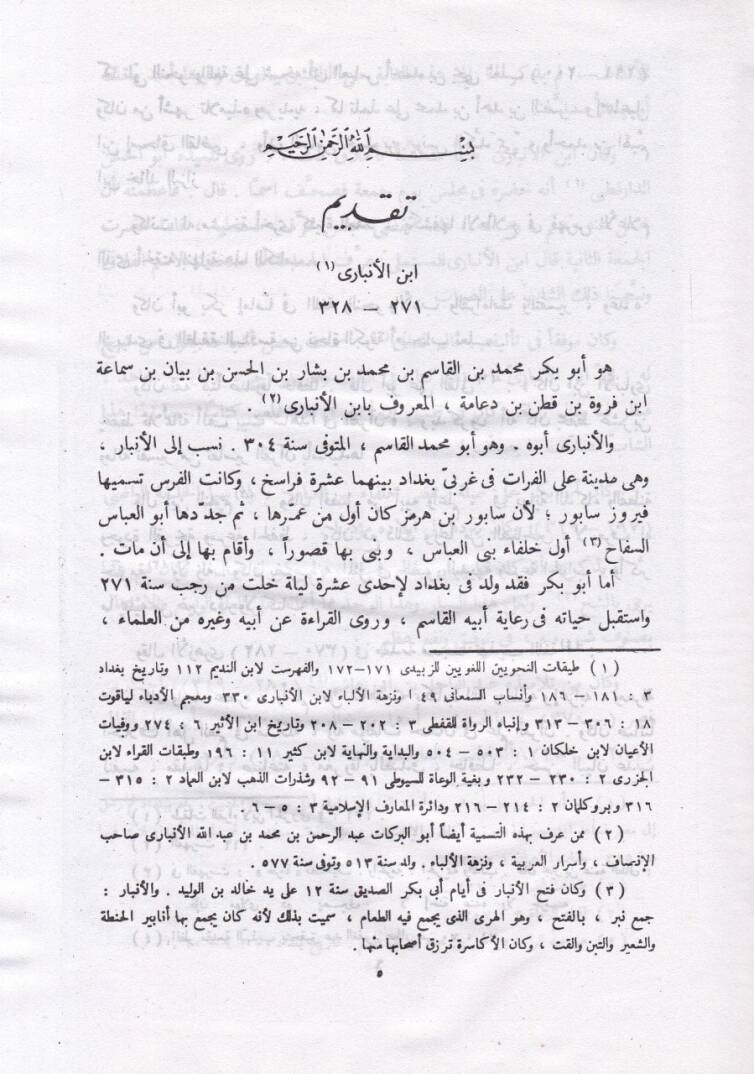 بسم الله الرحمن الرحيم
تقديم
ابن الأنبارى (١)
٢٧١ – ٣٢٨
هو أبو بكر محمد بن القاسم بن محمد بن بشار بن الحسن بن بيان بن سماعة
ابن فروة بن قطن بن دعامة ، المعروف بابن الأنبارى (٢) .
والأنبارى أبوه . وهو أبو محمد القاسم ، المتوفى سنة ٣٠٤ . نسب إلى الأنبار ،
وهى مدينة على الفرات فى غربىّ بغداد بينهما عشرة فراسخ ، وكانت الفرس تسميها
فيروز سابور ؛ لأن سابور بن هرمز كان أول من عمّرها ، ثم جدّدها أبو العباس
السفاح (٣) أول خلفاء بنى العباس ، وبنى بها قصوراً ، وأقام بها إلى أن مات .
أما أبو بكر فقد ولد فى بغداد لإحدى عشرة ليلة خلت من رجب سنة ٢٧١
واستقبل حياته فى رعاية أبيه القاسم ، وروى القراءة عن أبيه وغيره من العلماء ،
(١) طبقات النحويين اللغويين للزبيدى ١٧١–١٧٢ والفهرست لابن النديم ١١٢ وتاريخ بغداد
٣ : ١٨١ – ١٨٦ وأنساب السمعانى ٤٩ ا ونزهة الألباء لابن الأنبارى ٣٣٠ ومعجم الأدباء لياقوت
١٨ : ٣٠٦ – ٣١٣ وإنباه الرواة للقفطى ٣ : ٢٠٢ – ٢٠٨ وتاريخ ابن الأثير ٦ : ٢٧٤ ووفيات
الأعيان لابن خلكان ١ : ٥٠٣ – ٥٠٤ والبداية والنهاية لابن كثير ١١ : ١٩٦ وطبقات القراء لابن
الجزرى ٢ : ٢٣٠ – ٢٣٢ وبغية الوعاة للسيوطى ٩١ – ٩٢ وشذرات الذهب لابن العماد ٢ : ٣١٥ –
٣١٦ وبروكلمان ٢ : ٢١٤ – ٢١٦ ودائرة المعارف الإسلامية ٣ : ٥ – ٦ .
(٢) ممن عرف بهذه التسمية أيضاً أبو البركات عبد الرحمن بن محمد بن عبد الله الأنبارى صاحب
الإنصاف ، وأسرار العربية ، ونزهة الألباء . ولد سنة ٥١٣ وتوفى سنة ٥٧٧ .
(٣) وكان فتح الأنبار فى أيام أبى بكر الصديق سنة ١٢ على يد خالد بن الوليد . والأنبار :
جمع نبر ، بالفتح ، وهو الهرى الذى يجمع فيه الطعام ، سميت بذلك لأنه كان يجمع بها أنابير الحنطة
والشعير والتبن والقت ، وكان الأكاسرة ترزق أصحابها منها .
٥